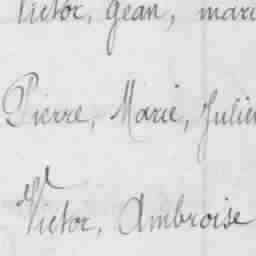 Victor, Jean, Mari
Pierre, Marie, Julien
Victor, Ambroise